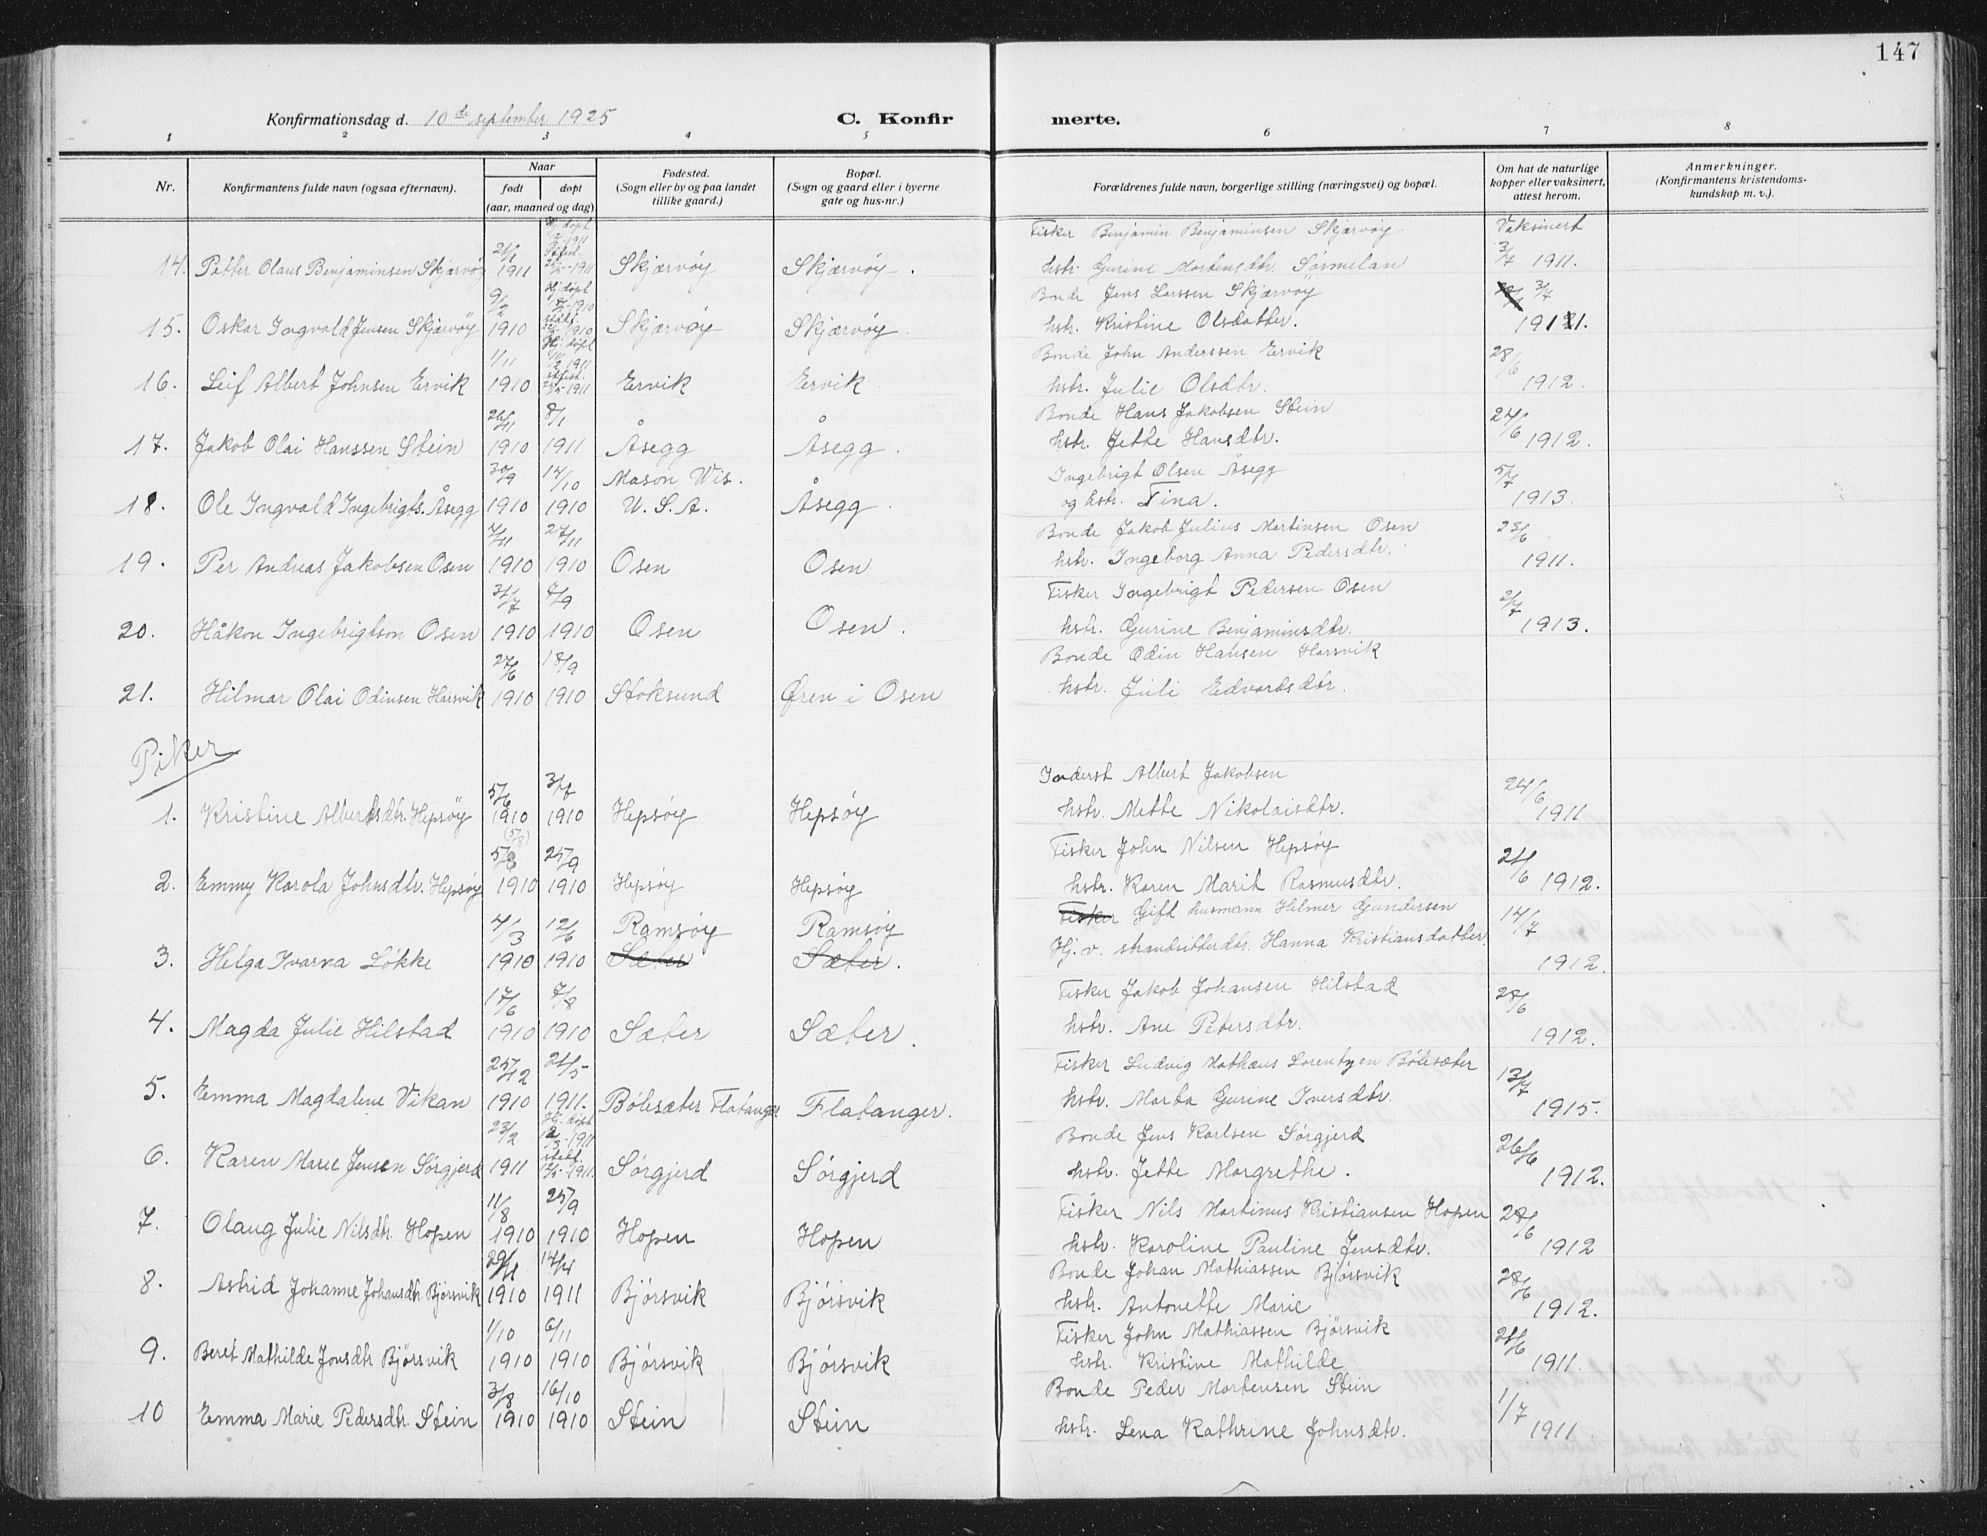 147
Konfirmationsdag d. 10de september 1925 C. Konfirmerte.
1 2 3 4 5 6 7 8
Nr. Konfirmantens fulde navn (ogsaa efternavn). Naar født døpt (aar, maaned og dag) Fødested. (Sogn eller by og paa landet tillike gaard.) Bopæl. (Sogn og gaard eller i byerne gate og hus-nr.) Forældrenes fulde navn, borgerlige stilling (næringsvei) og bopæl. Om hat de naturlige kopper eller vaksinert, attest herom. Anmerkninger. (Konfirmantens kristendomskundskap m. v.).
Fisker Benjamin Benjaminsen Skjærvøy Vaksinert
14. Petter Olaus Benjaminsen Skjærvøy 1911 Skjærvøy Skjærvøy. hstr. Gurine Mortensdtr. Sørmelan 3/7 1911.
9/2 Hj. døpt Bonde Jens Larssen Skjærvøy 3/7
15. Oskar Ingvald Jensen Skjærvøy 1910 Skjærvøy Skjærvøy. hstr. Kristine Olsdatter. 1911.
1/11 Hj. døpt Bonde John Anderssen Ervik 28/6
16. Leif Albert Johnsen Ervik 1910 Ervik Ervik. hstr. Julie Olsdtr. 1912.
26/11 8/1 Bonde Hans Jakobsen Stein 24/6
17. Jakob Olai Hanssen Stein 1910 1911 Åsegg Åsegg. hstr. Jette Hansdtr. 1912.
30/9 14/10 Mason Wis. Ingebrigt Olsen Åsegg 5/7
18. Ole Ingvald Ingebrigts. Åsegg 1910 1910 U. S. A. Åsegg. og hstr. Tina. 1913.
7/11 27/11 Bonde Jakob Julius Martinsen Osen 25/6
19. Per Andreas Jakobsen Osen 1910 1910 Osen Osen hstr. Ingeborg Anna Pedersdtr. 1911.
31/7 4/9 Fisker Ingebrigt Pedersen Osen 2/7
20. Håkon Ingebrigtson Osen 1910 1910 Osen Osen. hstr. Gurine Benjaminsdtr. 1913.
27/6 18/9 Bonde Odin Hansen Harsvik
21. Hilmar Olai Odinsen Harsvik 1910 1910 Stoksund Øren i Osen hstr. Juli Edvardsdtr.
Piker
5/6 3/7 Inderst Albert Jakobsen 24/6
1. Kristine Albertsdtr. Hepsøy 1910 1910 Hepsøy Hepsøy hstr. Mette Nikolaisdtr. 1911
(5/8) 5/8 25/9 Fisker John Nilsen Hepsøy 21/6
2. Emmy Karola Johnsdtr. Hepsøy 1910 1910 Hepsøy Hepsøy hstr. Karen Marit Rasmusdtr. 1912.
4/3 12/6 Ramsøy Ramsøy Fisker Gift husmann Hilmer Gundersen 14/7
3. Helga Ivarna Løkke 1910 1910 Sæter Sæter. Hj. v. strandsitterdtr. Hanna Kristiansdatter. 1912.
17/6 7/8 Fisker Jakob Johansen Hilstad 28/6
4. Magda Julie Hilstad 1910 1910 Sæter Sæter. hstr. Ane Petersdtr. 1912.
25/12 21/5 Fisker Ludvig Mathæus Lorentzen Bölesæter 13/7
5. Emma Magdalene Vikan 1910 1911. Bölesæter Flatanger Flatanger. hstr. Marta Gurine Iversdtr. 1915.
23/2 Hj. døpt 12/3-1911 Bonde Jens Karlsen Sörgjerd 26/6
6. Karen Marie Jensen Sörgjerd 1911 Sörgjerd Sörgjerd hstr. Jette Margrethe. 1912.
11/8 25/9 Fisker Nils Martinus Kristiansen Hopen 28/6
7. Olaug Julie Nilsdtr. Hopen 1910 1910 Hopen Hopen hstr. Karoline Pauline Jensdtr. 1912
29/11 14/4 Bonde Johan Mathiassen Bjørsvik 28/6
8. Astrid Johanne Johansdtr. Bjørsvik 1910 1911 Bjørsvik Bjørsvik hstr. Antonette Marie 1912.
1/10 6/11 Fisker John Mathiassen Bjørsvik 21/6
9. Beret Mathilde Jonsdtr Bjørsvik 1910 1910 Bjørsvik Bjørsvik hstr. Kristine Mathilde 1911.
3/8 16/10 Bonde Peder Mortensen Stein 1/7
10 Emma Marie Pedersdtr. Stein 1910 1910 Stein Stein hstr. Lena Kathrine Johnsdtr. 1911